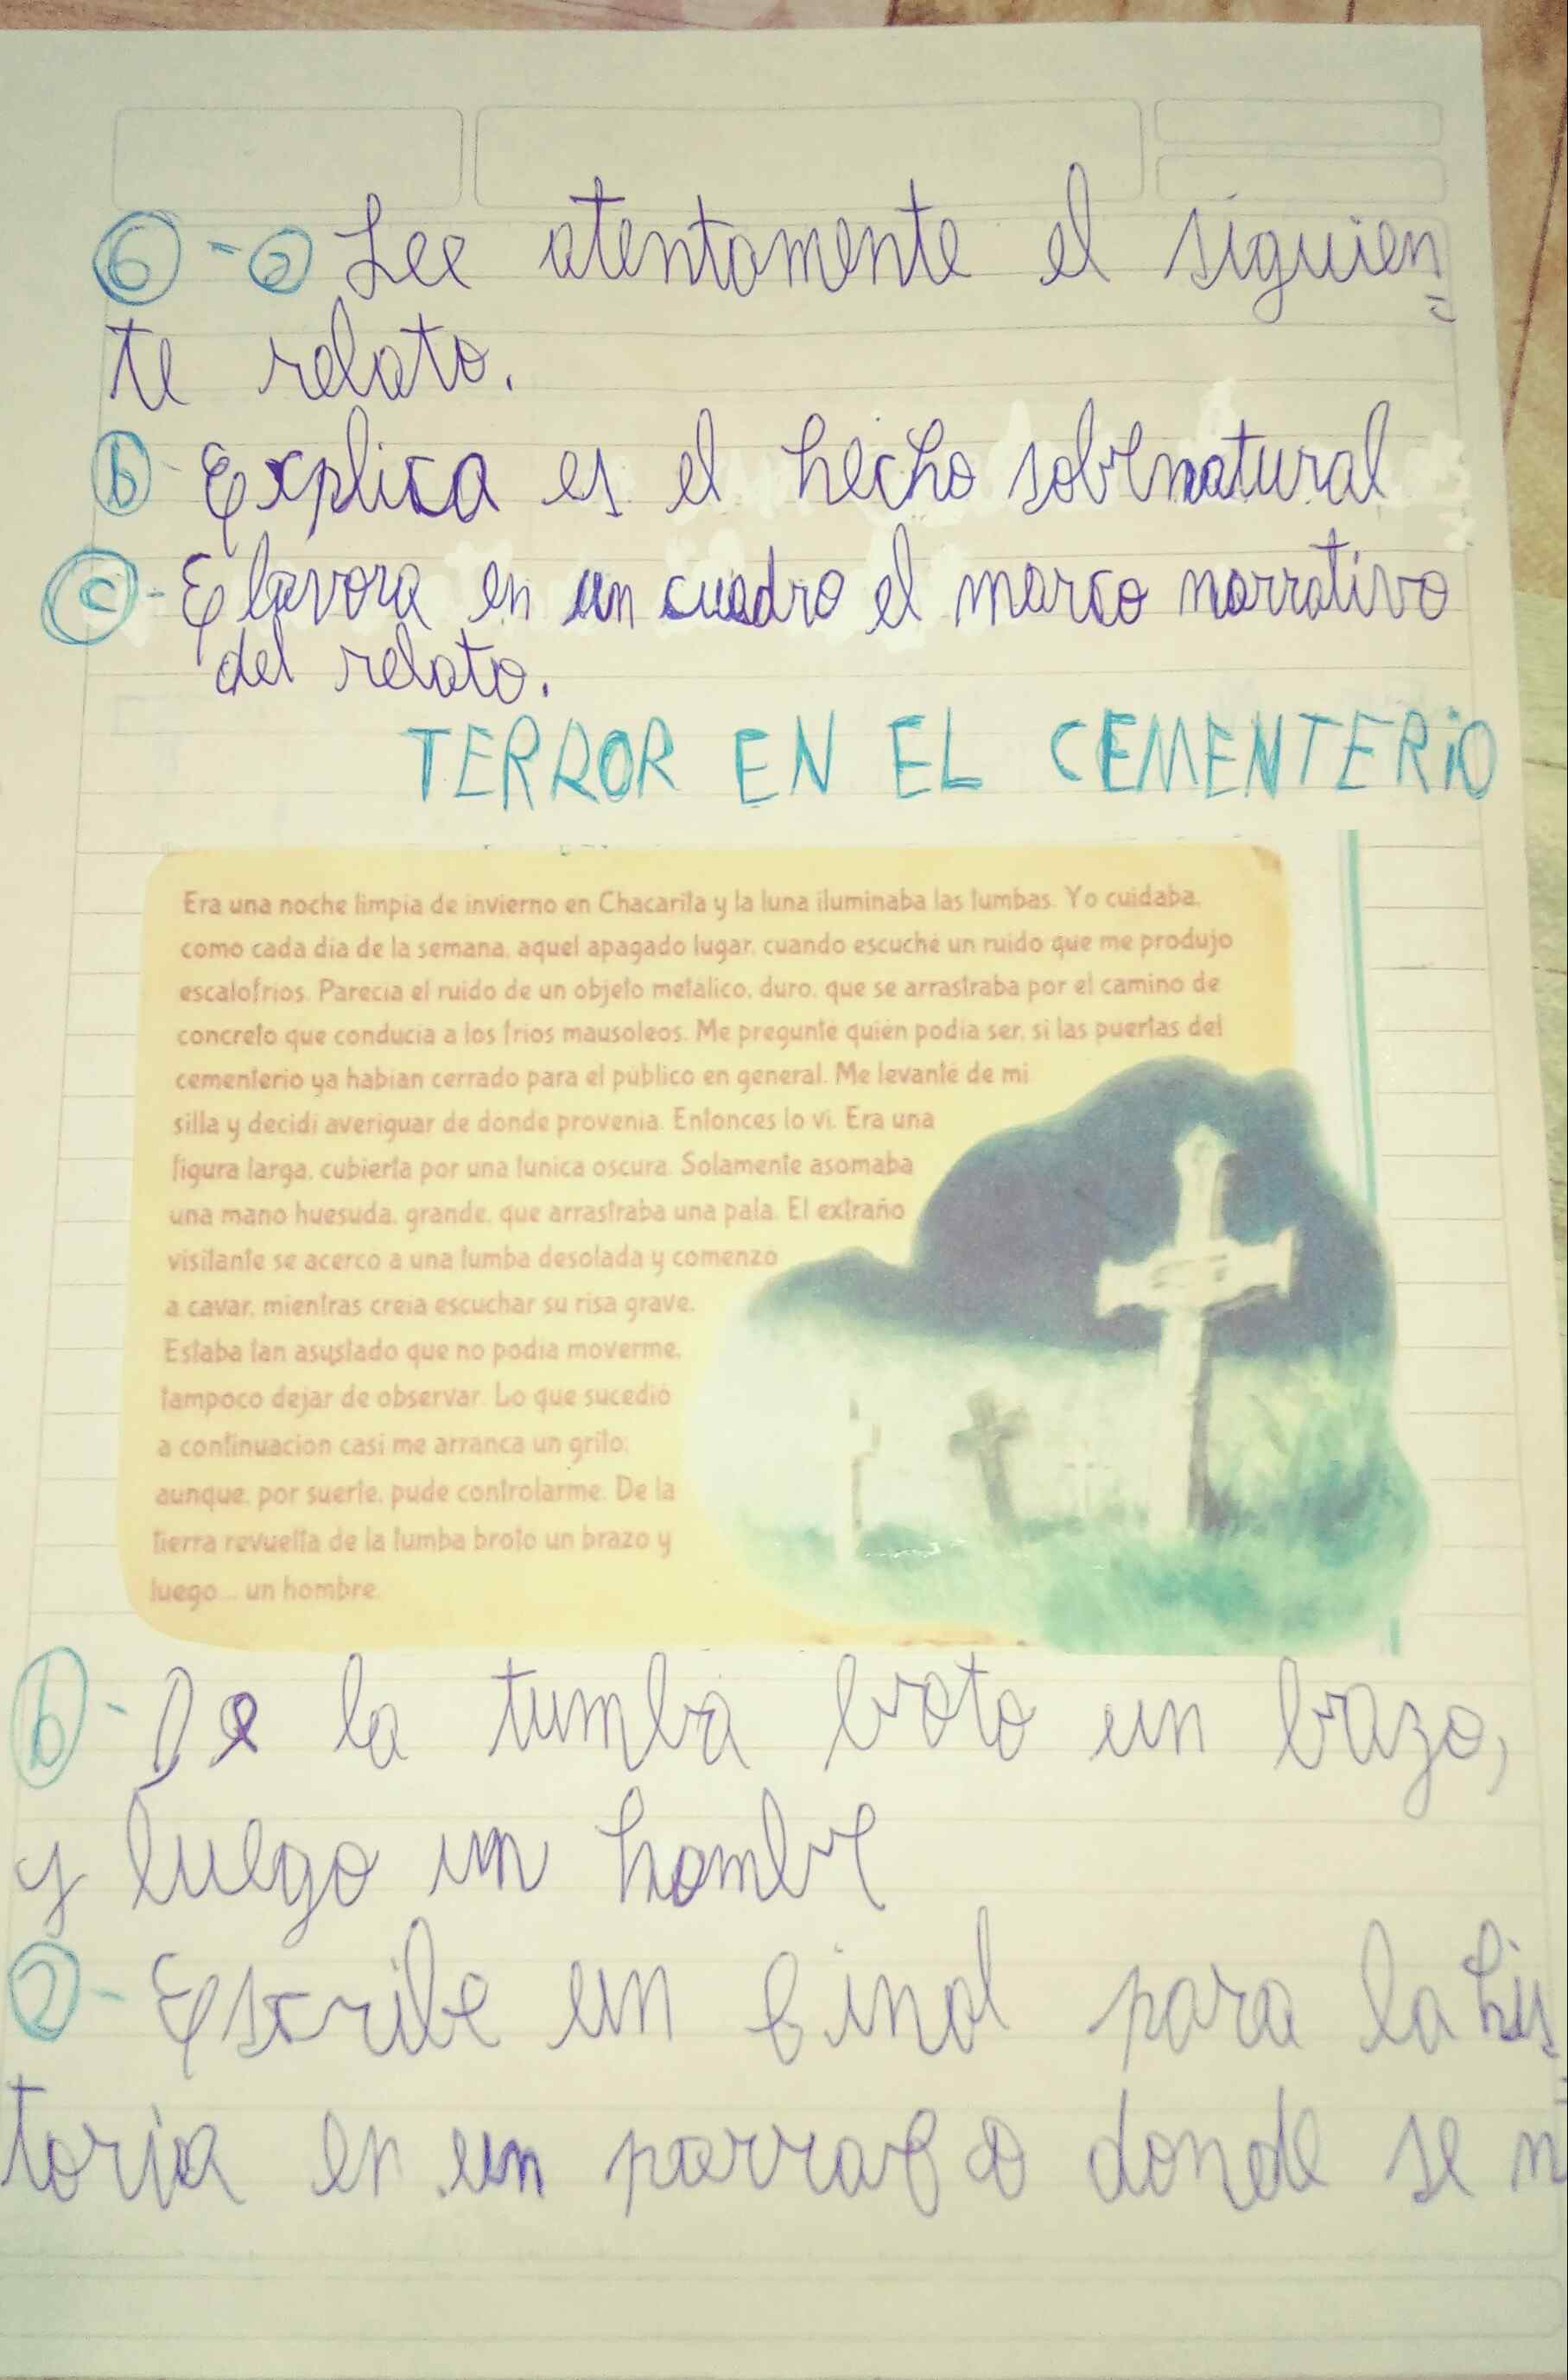 6-a Lee atentamente el siguien=
te relato.
b- Explica es el hecho sobrenatural
c- Elavora en un cuadro el marco narrativo
del relato.
TERROR EN EL CEMENTERiO
Era una noche limpia de invierno en Chacarita y la luna iluminaba las tumbas. Yo cuidaba,
como cada día de la semana, aquel apagado lugar, cuando escuché un ruido que me produjo
escalofríos. Parecía el ruido de un objeto metálico, duro, que se arrastraba por el camino de
concreto que conducía a los fríos mausoleos. Me pregunté quién podía ser, si las puertas del
cementerio ya habían cerrado para el público en general. Me levanté de mi
silla y decidí averiguar de dónde provenía. Entonces lo vi. Era una
figura larga, cubierta por una túnica oscura. Solamente asomaba
una mano huesuda, grande, que arrastraba una pala. El extraño
visitante se acercó a una tumba desolada y comenzó
a cavar, mientras creía escuchar su risa grave.
Estaba tan asustado que no podía moverme,
tampoco dejar de observar. Lo que sucedió
a continuación casi me arranca un grito;
aunque, por suerte, pude controlarme. De la
tierra revuelta de la tumba brotó un brazo y
luego... un hombre.
b- De la tumba broto un brazo,
y luego un hombre
2- Escribe un final para la his=
toria en un parrafo donde se